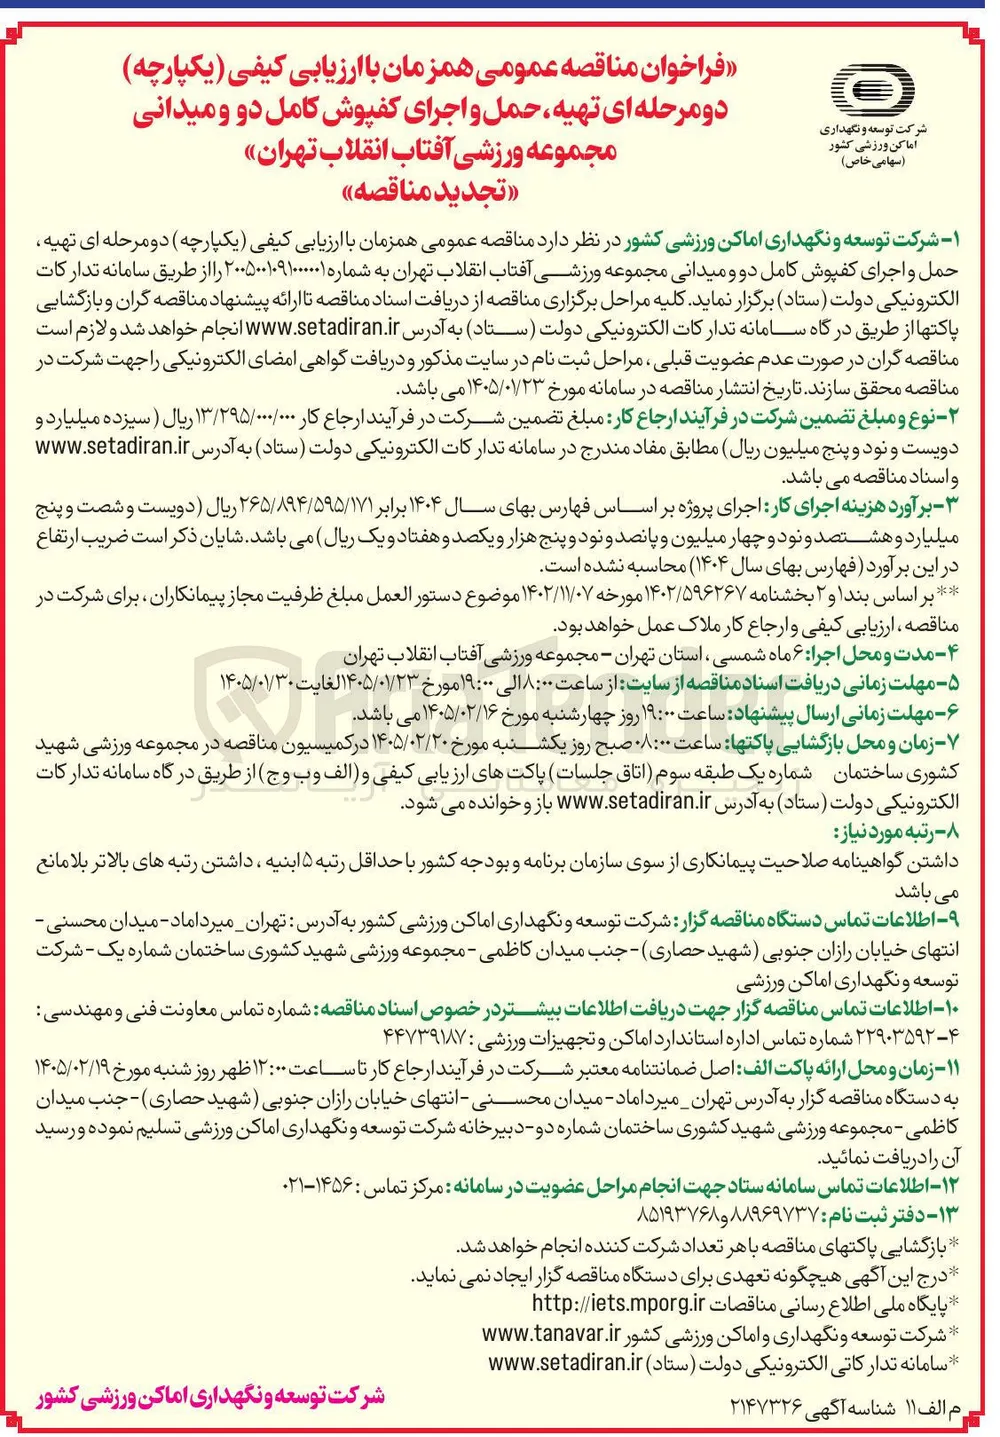 «فراخوان مناقصه عمومی همزمان با ارزیابی کیفی (یکپارچه)
دومرحله ای تهیه، حمل و اجرای کفپوش کامل دو و میدانی
مجموعه ورزشی آفتاب انقلاب تهران»
«تجدید مناقصه»
شرکت توسعه و نگهداری
اماکن ورزشی کشور
(سهامی خاص)
۱- شرکت توسعه و نگهداری اماکن ورزشی کشور در نظر دارد مناقصه عمومی همزمان با ارزیابی کیفی (یکپارچه) دومرحله ای تهیه،
حمل و اجرای کفپوش کامل دو و میدانی مجموعه ورزشی آفتاب انقلاب تهران به شماره ۲۰۰۵۰۰۱۰۹۱۰۰۰۰۰۱ را از طریق سامانه تدارکات
الکترونیکی دولت (ستاد) برگزار نماید. کلیه مراحل برگزاری مناقصه از دریافت اسناد مناقصه تا ارائه پیشنهاد مناقصه گران و بازگشایی
پاکتها از طریق درگاه سامانه تدارکات الکترونیکی دولت (ستاد) به آدرس www.setadiran.ir انجام خواهد شد و لازم است
مناقصه گران در صورت عدم عضویت قبلی، مراحل ثبت نام در سایت مذکور و دریافت گواهی امضای الکترونیکی را جهت شرکت در
مناقصه محقق سازند. تاریخ انتشار مناقصه در سامانه مورخ ۱۴۰۵/۰۱/۲۳ می باشد.
۲- نوع و مبلغ تضمین شرکت در فرآیند ارجاع کار: مبلغ تضمین شرکت در فرآیند ارجاع کار ۱۳/۲۹۵/۰۰۰/۰۰۰ ریال (سیزده میلیارد و
دویست و نود و پنج میلیون ریال) مطابق مفاد مندرج در سامانه تدارکات الکترونیکی دولت (ستاد) به آدرس www.setadiran.ir
و اسناد مناقصه می باشد.
۳- برآورد هزینه اجرای کار: اجرای پروژه بر اساس فهارس بهای سال ۱۴۰۴ برابر ۲۶۵/۸۹۴/۵۹۵/۱۷۱ ریال (دویست و شصت و پنج
میلیارد و هشتصد و نود و چهار میلیون و پانصد و نود و پنج هزار و یکصد و هفتاد و یک ریال) می باشد. شایان ذکر است ضریب ارتفاع
در این برآورد (فهارس بهای سال ۱۴۰۴) محاسبه نشده است.
**بر اساس بند ۱ و ۲ بخشنامه ۱۴۰۲/۵۹۶۲۶۷ مورخه ۱۴۰۲/۱۱/۰۷ موضوع دستور العمل مبلغ ظرفیت مجاز پیمانکاران، برای شرکت در
مناقصه، ارزیابی کیفی و ارجاع کار ملاک عمل خواهد بود.
۴- مدت و محل اجرا: ۶ ماه شمسی، استان تهران - مجموعه ورزشی آفتاب انقلاب تهران
۵- مهلت زمانی دریافت اسناد مناقصه از سایت: از ساعت ۸:۰۰ الی ۱۹:۰۰ مورخ ۱۴۰۵/۰۱/۲۳ لغایت ۱۴۰۵/۰۱/۳۰
۶- مهلت زمانی ارسال پیشنهاد: ساعت ۱۹:۰۰ روز چهارشنبه مورخ ۱۴۰۵/۰۲/۱۶ می باشد.
۷- زمان و محل بازگشایی پاکتها: ساعت ۰۸:۰۰ صبح روز یکشنبه مورخ ۱۴۰۵/۰۲/۲۰ در کمیسیون مناقصه در مجموعه ورزشی شهید
کشوری ساختمان شماره یک طبقه سوم (اتاق جلسات) پاکت های ارزیابی کیفی و (الف و ب و ج) از طریق درگاه سامانه تدارکات
الکترونیکی دولت (ستاد) به آدرس www.setadiran.ir باز و خوانده می شود.
۸- رتبه مورد نیاز:
داشتن گواهینامه صلاحیت پیمانکاری از سوی سازمان برنامه و بودجه کشور با حداقل رتبه ۵ ابنیه، داشتن رتبه های بالاتر بلامانع
می باشد
۹- اطلاعات تماس دستگاه مناقصه گزار: شرکت توسعه و نگهداری اماکن ورزشی کشور به آدرس: تهران _ میرداماد - میدان محسنی -
انتهای خیابان رازان جنوبی (شهید حصاری) - جنب میدان کاظمی - مجموعه ورزشی شهید کشوری ساختمان شماره یک - شرکت
توسعه و نگهداری اماکن ورزشی
۱۰- اطلاعات تماس مناقصه گزار جهت دریافت اطلاعات بیشتر در خصوص اسناد مناقصه: شماره تماس معاونت فنی و مهندسی:
۴-۲۲۹۰۳۵۹۲ شماره تماس اداره استاندارد اماکن و تجهیزات ورزشی: ۴۴۷۳۹۱۸۷
۱۱- زمان و محل ارائه پاکت الف: اصل ضمانتنامه معتبر شرکت در فرآیند ارجاع کار تا ساعت ۱۲:۰۰ ظهر روز شنبه مورخ ۱۴۰۵/۰۲/۱۹
به دستگاه مناقصه گزار به آدرس تهران _ میرداماد - میدان محسنی - انتهای خیابان رازان جنوبی (شهید حصاری) - جنب میدان
کاظمی - مجموعه ورزشی شهید کشوری ساختمان شماره دو - دبیرخانه شرکت توسعه و نگهداری اماکن ورزشی تسلیم نموده و رسید
آن را دریافت نمائید.
۱۲- اطلاعات تماس سامانه ستاد جهت انجام مراحل عضویت در سامانه: مرکز تماس: ۱۴۵۶-۰۲۱
۱۳- دفتر ثبت نام: ۸۸۹۶۹۷۳۷ و ۸۵۱۹۳۷۶۸
*بازگشایی پاکتهای مناقصه با هر تعداد شرکت کننده انجام خواهد شد.
*درج این آگهی هیچگونه تعهدی برای دستگاه مناقصه گزار ایجاد نمی نماید.
*پایگاه ملی اطلاع رسانی مناقصات http://iets.mporg.ir
*شرکت توسعه و نگهداری و اماکن ورزشی کشور www.tanavar.ir
*سامانه تدارکاتی الکترونیکی دولت (ستاد) www.setadiran.ir
م الف ۱۱ شناسه آگهی ۲۱۴۷۳۲۶
شرکت توسعه و نگهداری اماکن ورزشی کشور